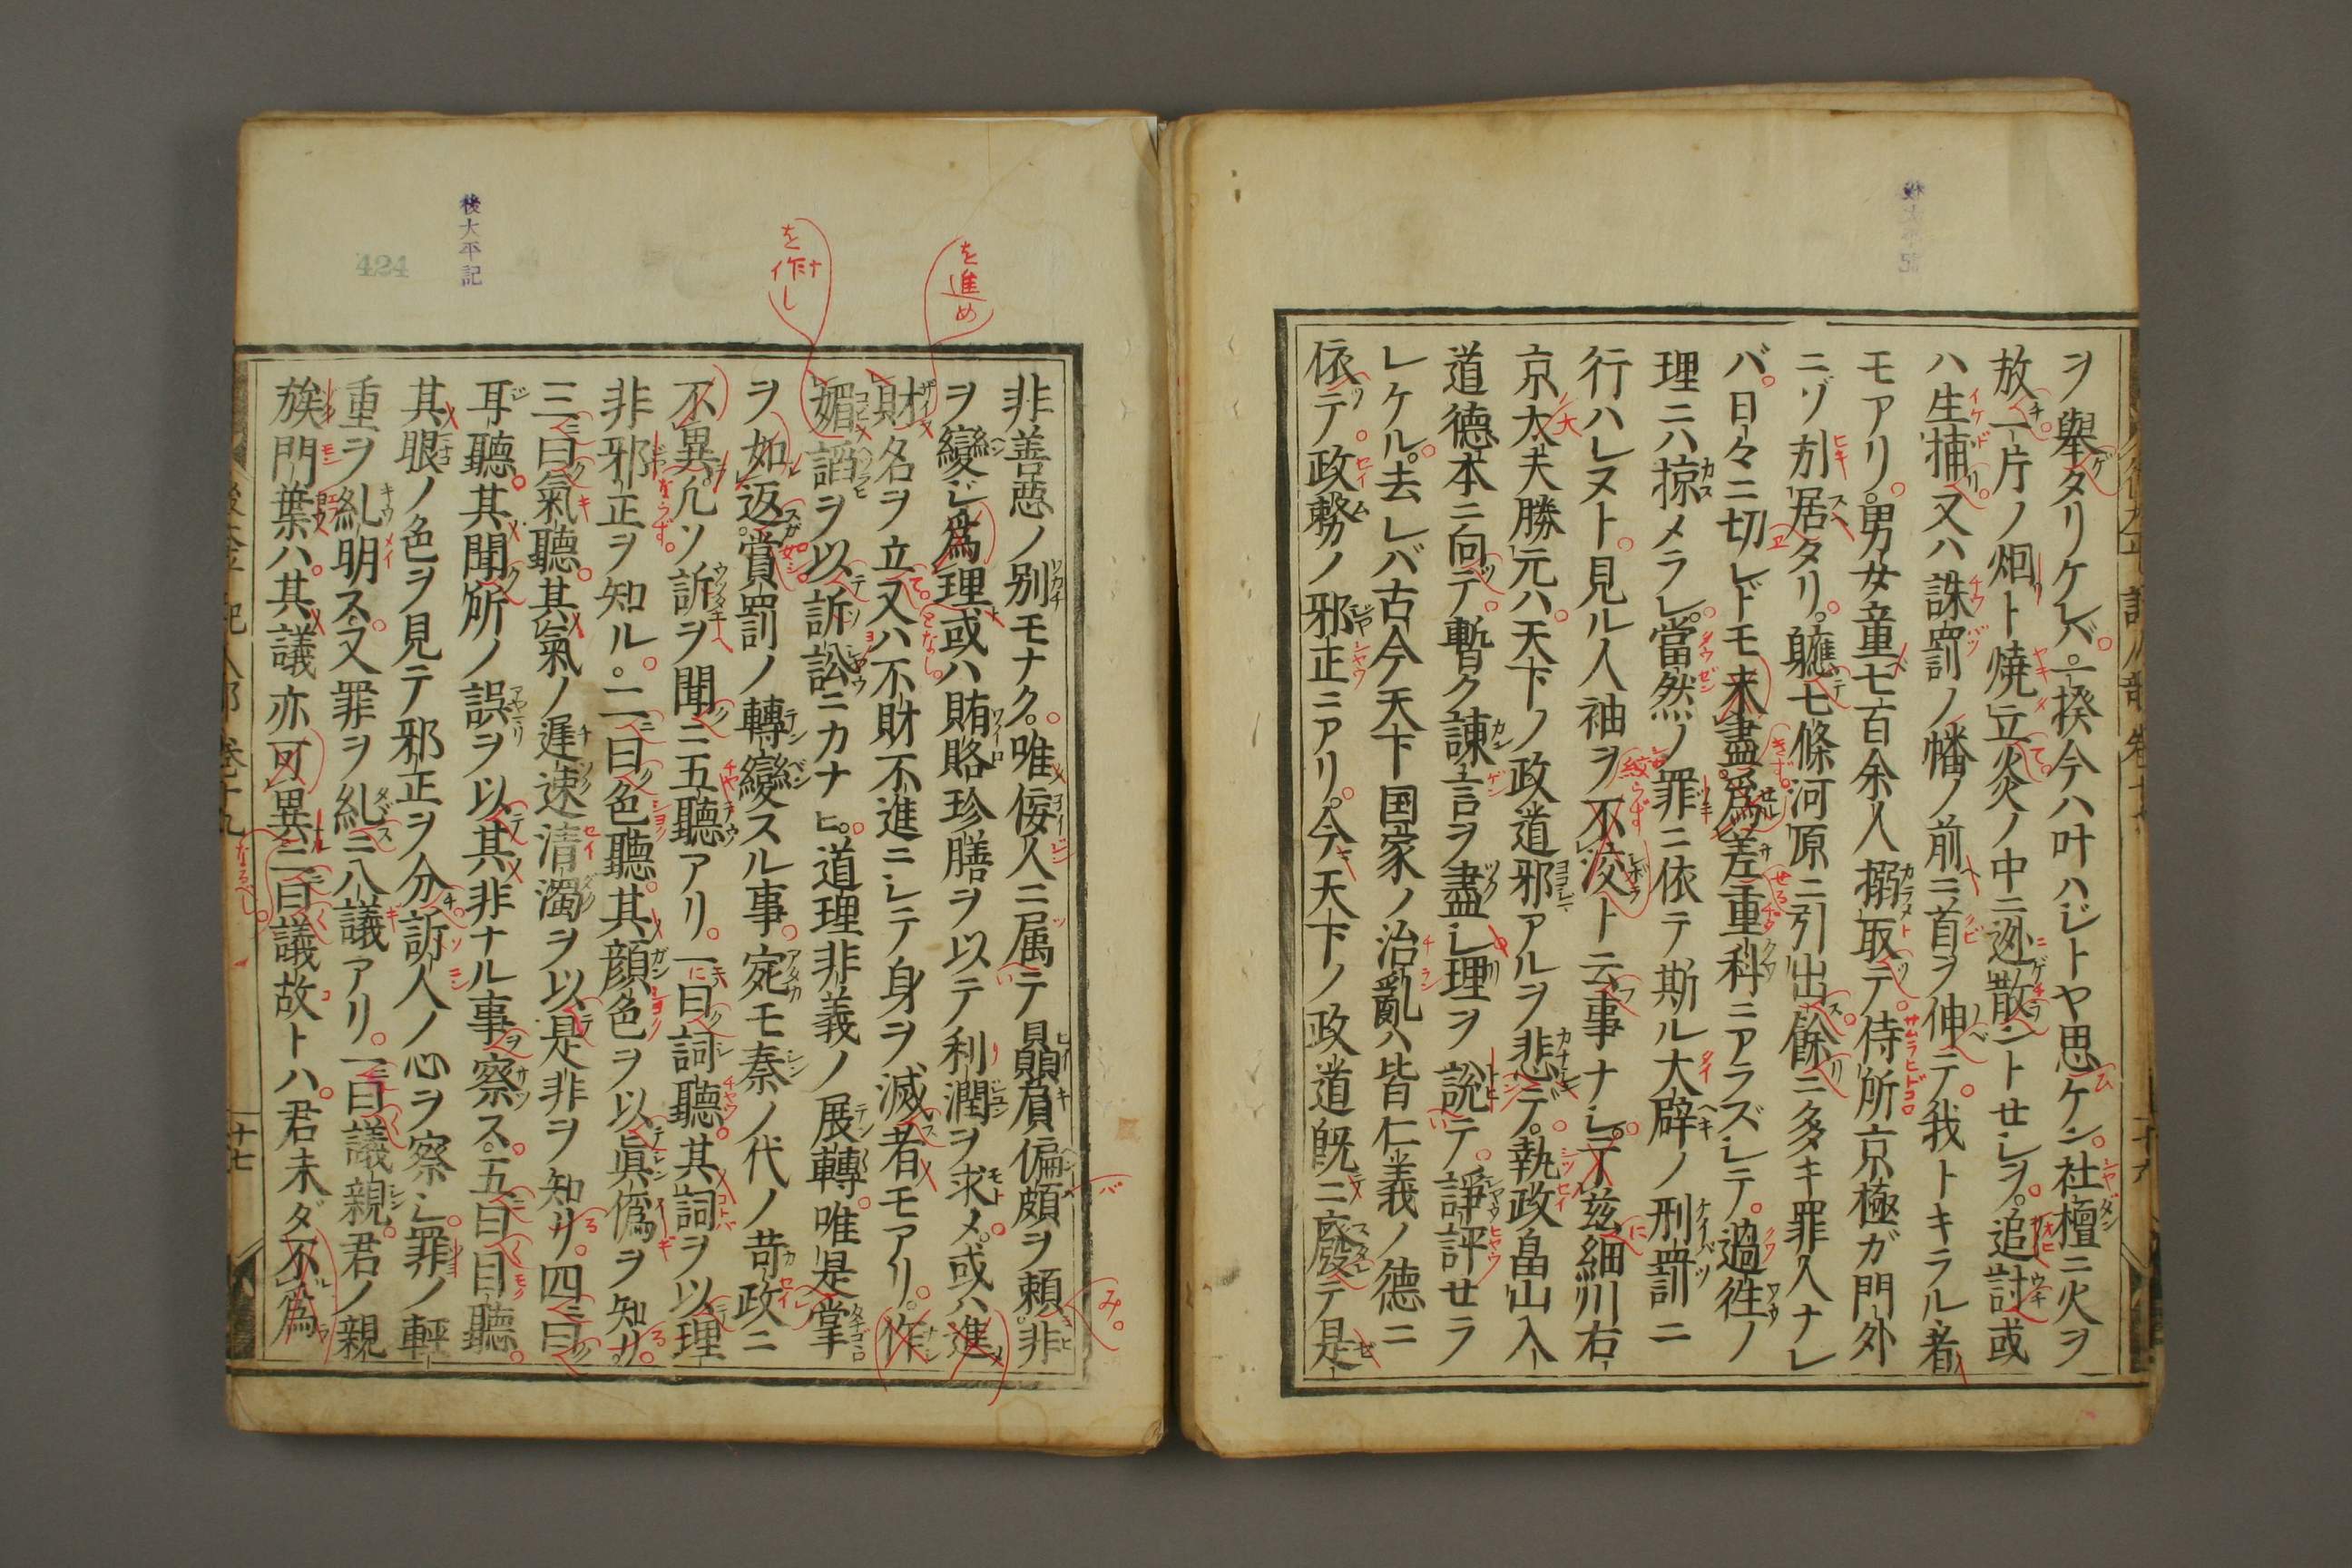 ヲ舉タリケレバ一揆今ハ叶ハジトヤ思ケン社壇ニ火ヲ
放一片ノ烟ト焼立炎ノ中ニ迯散ントせシヲ追討或
ハ生捕又ハ誅罰ノ幡ノ前ニ首ヲ伸テ我トキラル者
モアリ男女童七百余人搦取テ侍所京極ガ門外
ニゾ引居タリ軈七條河原ニ引出餘ニ多キ罪人ナレ
バ日々ニ切レドモ未盡爲差重科ニアラズシテ過徃ノ
理ニハ掠メラレ當然ノ罪ニ依テ斯ル大辟ノ刑罰ニ
行ハレヌト見ル人袖ヲ不浚ト云事ナシ于茲細川右
京大夫勝元ハ天下ノ政道邪アルヲ悲デ執政畠山入
道德本ニ向テ暫ク諫言ヲ盡シ理ヲ説テ諍評せラ
レケル去レバ古今天下国家ノ治亂ハ皆仁義ノ德ニ
依テ政務ノ邪正ニアリ今天下ノ政道既ニ廢テ是
非善惡ノ別モナク唯佞人ニ属テ贔屓偏頗ヲ頼非
ヲ變ジ爲理或ハ賄賂珍膳ヲ以テ利潤ヲ求メ或ハ進
財名ヲ立又ハ不財不進ニシテ身ヲ滅者モアリ作
媚諂ヲ以訴訟ニカナヒ道理非義ノ展轉唯是掌
ヲ如返賞罰ノ轉變スル事宛モ秦ノ代ノ苛政ニ
不異凡ソ訴ヲ聞ニ五聽アリ一曰詞聽其詞ヲ以理
非邪正ヲ知ル二曰色聽其顔色ヲ以眞僞ヲ知リ
三曰氣聽其氣ノ遲速清濁ヲ以是非ヲ知リ四曰
耳聽其聞所ノ誤ヲ以其非ナル事察ス五曰目聽
其眼ノ色ヲ見テ邪正ヲ分訴人ノ心ヲ察シ罪ノ輕
重ヲ糺明ス又罪ヲ糺ニ八議アリ一曰議親君ノ親
族門葉ハ其議亦可異二曰議故トハ君未ダ不爲
後太平記
424
を進め
を作し
十七